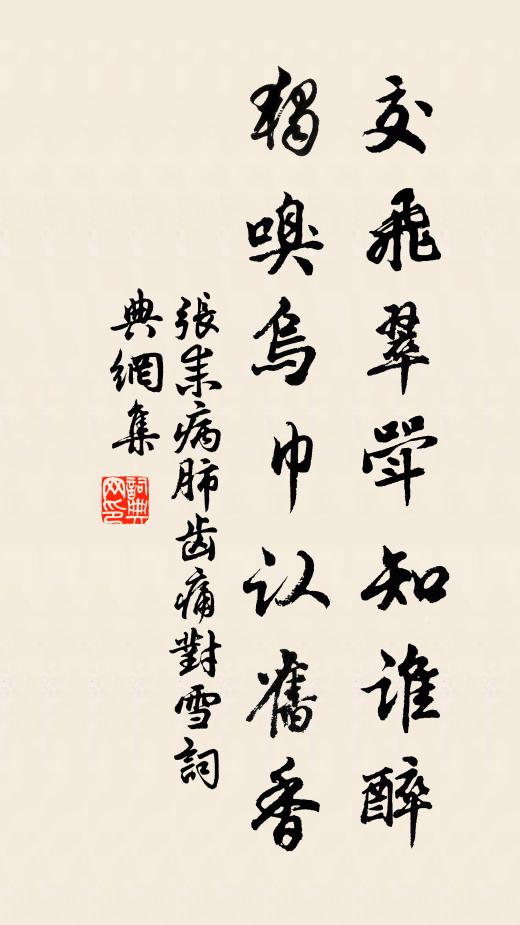 交飛翠斝知谁醉
獨嗅烏巾认舊香
張耒病肺齿痛對雪詞
典網集
詞典
网印